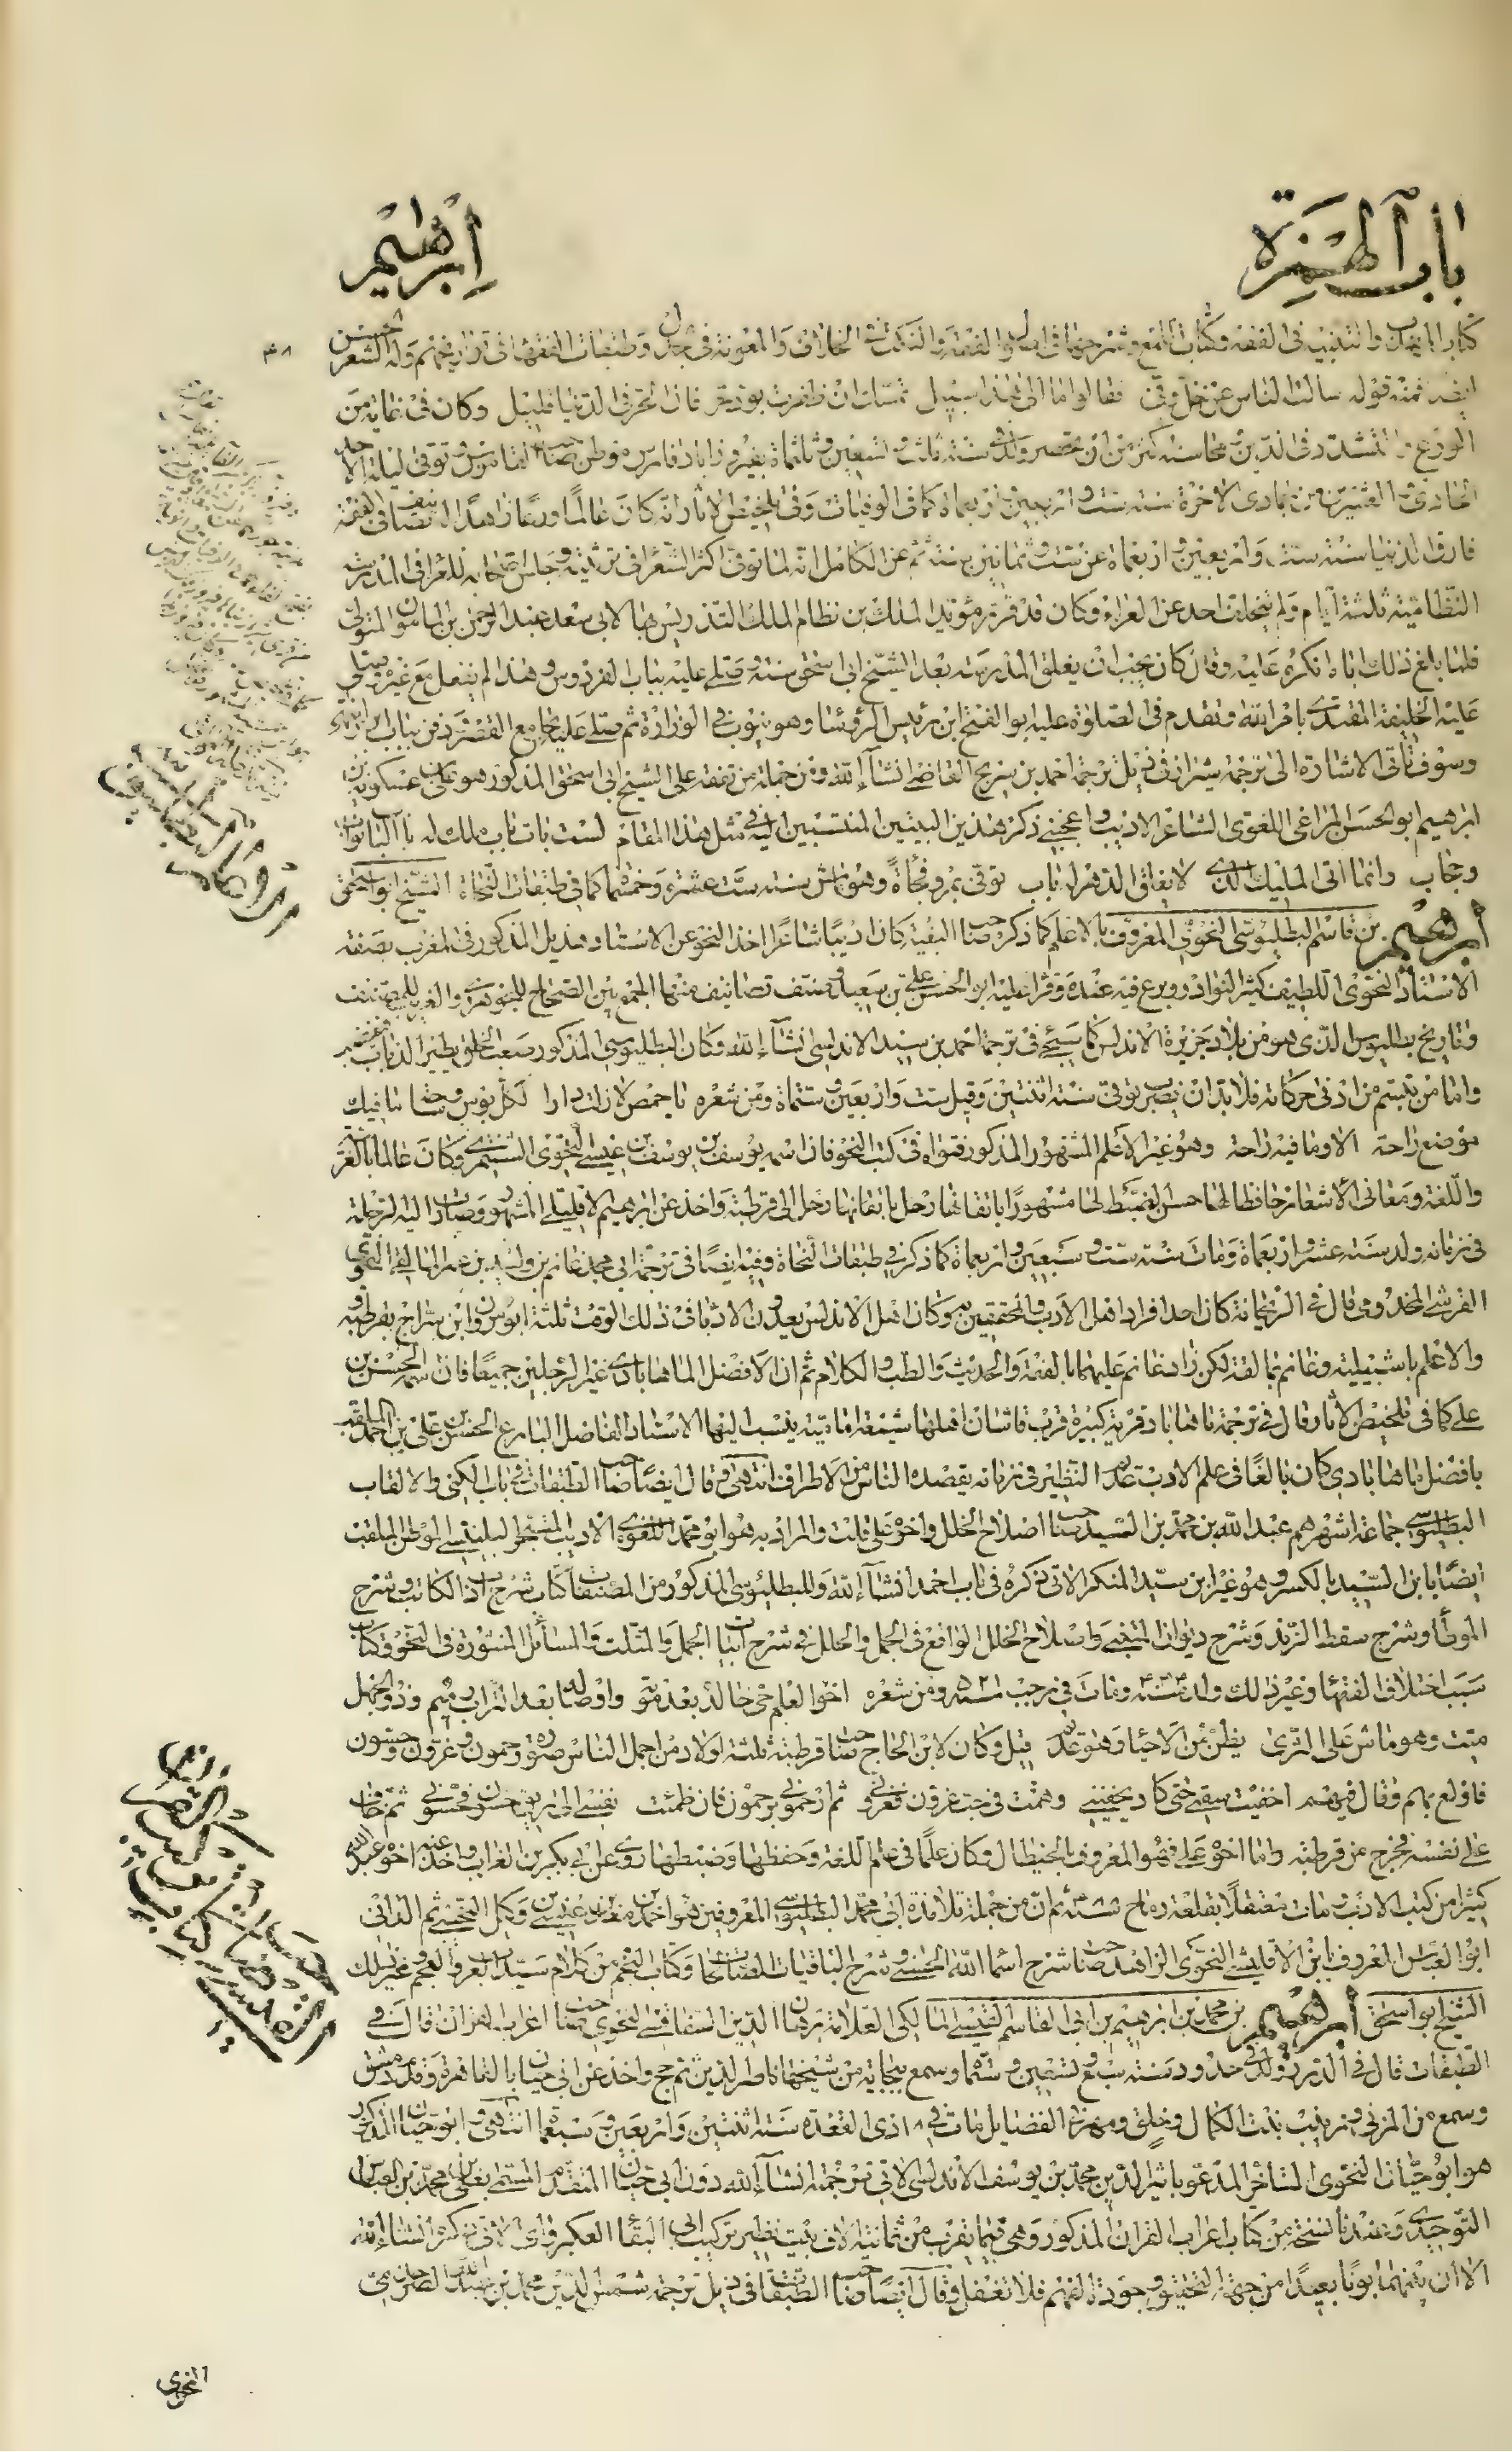 باب الهمزة
ابرهيم
٣٨
كتاب المهذب والتنبيه فى الفقه وكتاب اللمع وشرحها فى اصول الفقه والنكت فى الخلاف والمعونة فى الجدل وطبقات الفقهاء وله الشعر الحسن
فمنه قوله سالت الناس عن خل وفى فقالوا ما الى هذا سبيل تمسك ان ظفرت بود حر فان الحر فى الدنيا قليل وكان فى غاية من
الورع والتشدد فى الدين ومحاسنه اكثر من ان تحصر ولد فى سنة ثلث وتسعين وثلثمائة بفيروزاباد فارس موطن صاحب القاموس وتوفى ليلة الاحد
الحادى والعشرين من جمادى الاخرة سنة ست واربعمائة كما فى الوفيات وفى تلخيص الاثار انه كان عالما ورعا زاهدا له تصانيف فى الفقه
فارق الدنيا سنة ست واربعين واربعمائة عن ست وثمانين سنة ثم عن الكامل انه لما توفى اكثر الشعراء فى مرثيته وجلس اصحابه للعزاء فى المدرسة
النظامية ثلثة ايام ولم يتخلف احد عن العزاء وكان قد قرر مؤيد الملك بن نظام الملك التدريس بها لابى سعد عبد الرحمن بن المامون المتولى
فلما بلغ ذلك اباه انكره عليه وقال كان يجب ان يغلق المدرسة بعد الشيخ ابى اسحق سنة وصلى عليه بباب الفردوس وهذا لم يفعل مع غيره وصلى
عليه الخليفة المقتدى بامر الله وتقدم فى الصلوة عليه ابو الفتح ابن رئيس الرؤساء وهو ينوب فى الوزارة ثم صلى عليه بجامع القصر ودفن بباب
وسوف تاتى الاشارة الى ترجمة شيراز فى ذيل ترجمة احمد بن سريج القاضى انشاء الله ومن جملة من تفقه على الشيخ ابى اسحق المذكور هو على بن عسكويه بن
ابرهيم ابو الحسن المراغى اللغوى الشاعر الاديب واعجبنى ذكر هذين البيتين المنتسبين اليه فى مثل هذا المقام لست بات باب ملك له بالباب نواب
وحجاب وانما اتى المليك الذى لا يغلق الدهر له باب توفى بمرو فجأة وهو ماش سنة ست عشرة وخمسمائة كما فى طبقات النحاة الشيخ ابو اسحق
ابرهيم بن قاسم البطليوسى النحوى المعروف بالاعلم كما ذكره صاحب البغية كان اديبا شاعرا اخذ النحو عن الاستاد هذيل المذكور فى المغرب بصفة
الاستاد النحوى اللطيف كثير النوادر وبرع فيه عنده وقرا عليه ابو الحسن على بن سعيد وصنف تصانيف منها الجمع بين الصحاح للجوهرى والغريب المصنف
وتاريخ بطليوس الذى هو من بلاد جزيرة الاندلس كما سيجئ فى ترجمة احمد بن سيد الاندلسى انشاء الله وكان البطليوسى المذكور صعب الخلق يطير الذباب فيغضب
واما من تبسم من ادنى حركاته فلا بد ان يضرب توفى سنة اثنتين وقيل ست واربعين وستمائة ومن شعره يا حمص لا زلت دارا لكل بؤس وساحة ما فيك
موضع راحة الا وما فيه راحة وهو غير الاعلم المشهور المذكور فتواه فى كتب النحو فان اسمه يوسف بن عيسى النحوى الشنتمرى وكان عالما بالعربية
واللغة ومعانى الاشعار حافظا لها حسن الضبط لها مشهورا باتقانها رحل الى قرطبة واخذ عن ابرهيم الافليلى وصارت اليه الرحلة
فى زمانه ولد سنة عشر واربعمائة ومات سنة ست وسبعين واربعمائة كما ذكر فى طبقات النحاة وفيه ايضا فى ترجمة ابى محمد غانم بن وليد بن عمر المالقى النحوى
القرشى المخزومى قال فى الريحانة كان احد افراد اهل الادب والمحققين به وكان اهل الاندلس يعدون الادباء فى ذلك الوقت ثلثة ابو مروان ابن سراج بقرطبة
والاعلم باشبيلية وغانم بمالقة لكن زاد غانم عليهما بالفقه والحديث والطب والكلام ثم ان الافضل الماهابادى غير الرجلين جميعا فان اسمه الحسن بن
على كما فى تلخيص الاثار قال فى ترجمة ماهاباد قرية كبيرة قرب قاشان اهلها شيعة امامية ينسب اليها الاستاد الفاضل البارع الحسن بن على بن احمد الملقب
بافضل ماهابادى كان بالغا فى علم الادب عديم النظير فى زمانه يقصده الناس من الاطراف انتهى وقال ايضا صاحب الطبقات فى باب الكنى والالقاب
البطليوسى جماعة اشهرهم عبد الله بن محمد بن السيد صاحب اصلاح الخلل واخوه على قلت والمراد به هو ابو محمد اللغوى الاديب المتبحر البلنسى الموطن الملقب
ايضا بابن السيد بالكسر وهو غير ابن سيد المنكر الاتى ذكره فى باب احمد انشاء الله وللبطليوسى المذكور من المصنفات كتاب شرح ادب الكاتب وشرح
الموطأ وشرح سقط الزند وشرح ديوان المتنبى واصلاح الخلل الواقع فى الجمل والحلل فى شرح ابيات الجمل والمثلث والمسائل المنثورة فى النحو وكتاب
سبب اختلاف الفقهاء وغير ذلك ولد سنة ٤٤٤ ومات فى رجب سنة ٥٢١ ومن شعره اخو العلم حى خالد بعد موته واوصاله بعد التراب رميم وذو الجهل
ميت وهو ماش على الثرى يظن من الاحياء وهو عديم قيل وكان لابن الحاج صاحب قرطبة ثلثة اولاد من اجمل الناس صورة رحمون وعزون وحسون
فاولع بهم وقال فيهم اخفيت سقمى حتى كاد يخفينى وهمت فى حب عزون فعزونى ثم ارحمونى برحمون فان ظمئت نفسى الى ريق حسون فحسونى ثم خاف
على نفسه فخرج من قرطبة واما اخوه على فهو المعروف بالخيطال وكان علما فى علم اللغة وحفظها وضبطها روى عن ابى بكر بن الغراب واخذ عنه اخوه عبد الله
كثيرا من كتب الادب ومات معتقلا بقلعة رباح ثم ان من جملة تلامذة ابى محمد البطليوسى المعروفين هو احمد بن معد بن عيسى بن وكيل التجيبى ثم الدانى
ابو العباس المعروف بابن الاقليشى النحوى الزاهد صاحب شرح اسماء الله الحسنى وشرح الباقيات الصالحات وكتاب النجم من كلام سيد العرب والعجم وغير ذلك
الشيخ ابو اسحق ابرهيم بن محمد بن ابرهيم بن ابى القاسم القيسى المالكى العلامة برهان الدين السفاقسى النحوى صاحب اعراب القران قال فى
الطبقات قال فى الدرر ولد فى حدود سنة سبع وتسعين وستمائة وسمع ببجاية من شيخها ناصر الدين ثم حج واخذ عن ابى حيان بالقاهرة وقدم دمشق
وسمع من المزى وزينب بنت الكمال وخلق ومهر فى الفضايل مات فى ١٨ ذى القعدة سنة اثنتين واربعين وسبعمائة انتهى وابو حيان المذكور
هو ابو حيان النحوى المتأخر المدعو باثير الدين محمد بن يوسف الاندلسى الاتى ترجمته انشاء الله دون ابى حيان المتقدم المسمى بعلى بن محمد بن العباس
التوحيدى وعندنا نسخة من كتاب اعراب القران المذكور وهى فيما يقرب من ثمانية الاف بيت نظير تركيب ابى البقاء العكبرى الاتى ذكره انشاء الله
الا ان بينهما بونا بعيدا من جهة التحقيق وجودة الفهم فلا تغفل وقال ايضا صاحب الطبقات فى ذيل ترجمة شمس الدين محمد بن
النحوى